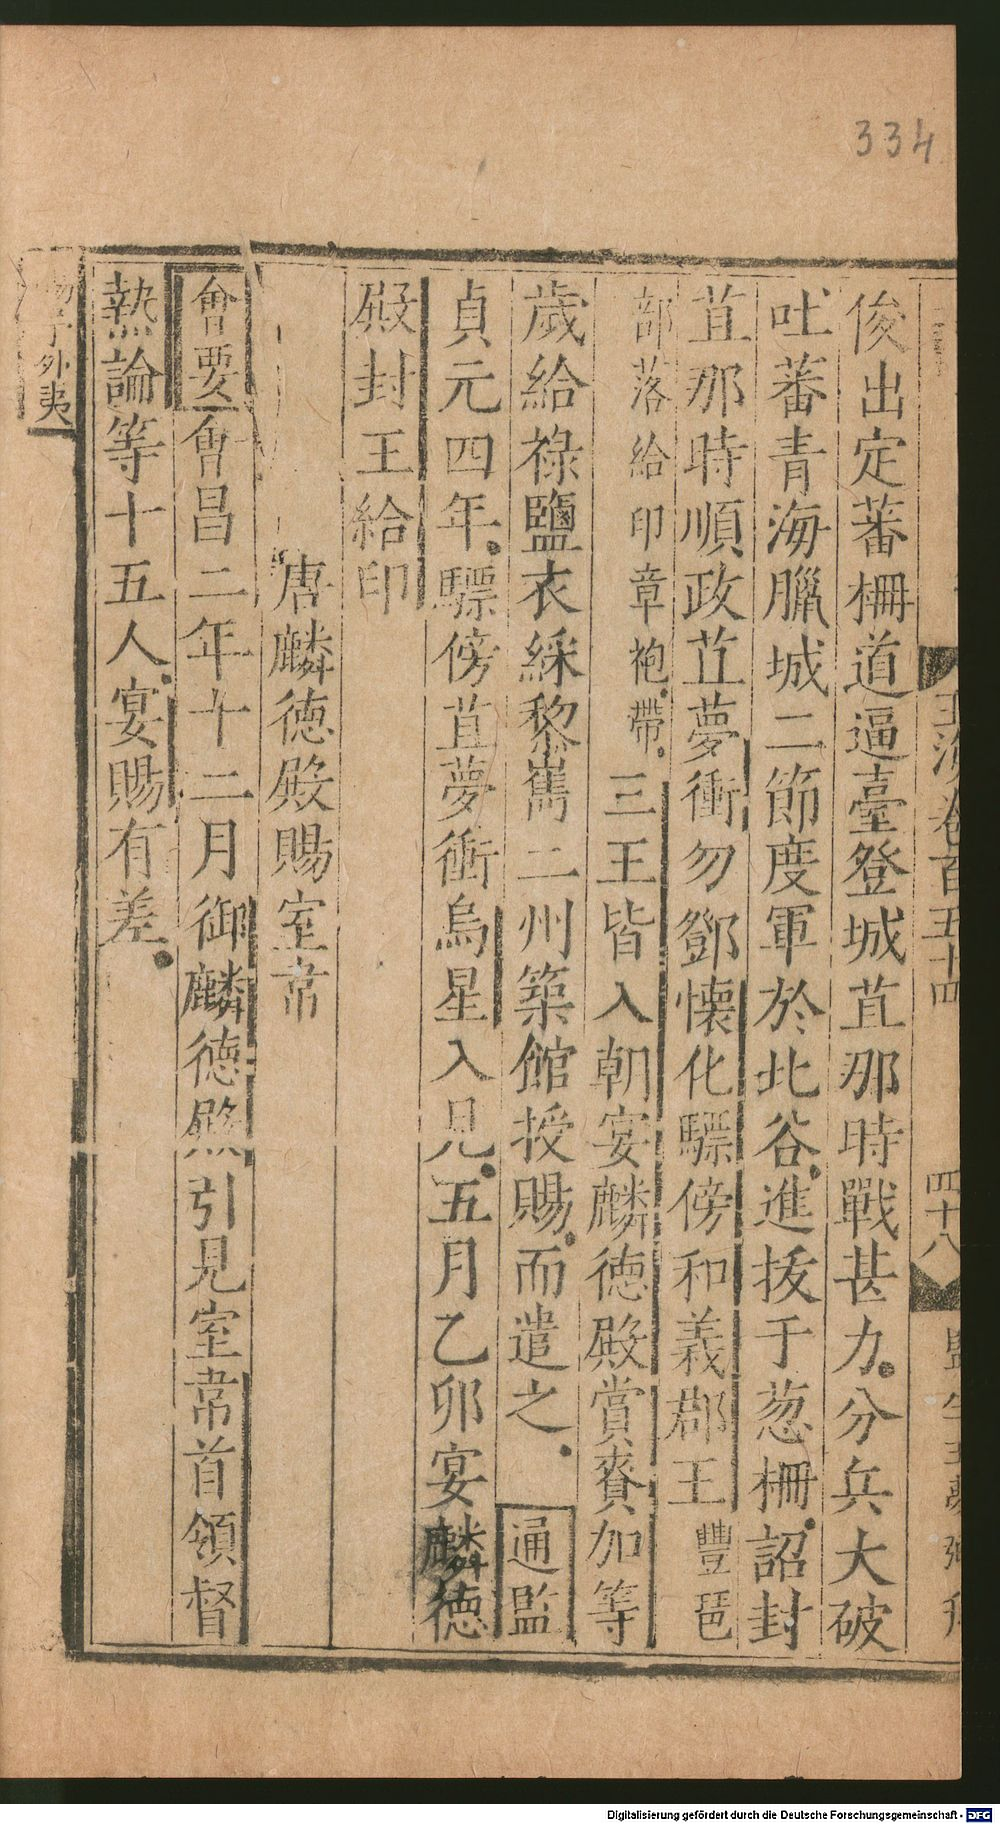 334
玉海卷百五十四
四十八
俊出定蕃柵道逼臺登城苴那時戰甚力分兵大破
吐蕃青海臘城二節度軍於北谷進拔于葱柵詔封
苴那時順政苴夢衝勿鄧懷化驃傍和義郡王豐琶
部落給印章袍帶三王皆入朝宴麟德殿賞賚加等
歲給祿鹽衣綵黎嶲二州築館授賜而遣之通監
貞元四年驃傍苴夢衝烏星入見五月乙卯宴麟德
殿封王給印
唐麟德殿賜室韋
會要會昌二年十二月御麟德殿引見室韋首領督
熱論等十五人宴賜有差
外夷
Digitalisierung gefördert durch die Deutsche Forschungsgemeinschaft - DFG